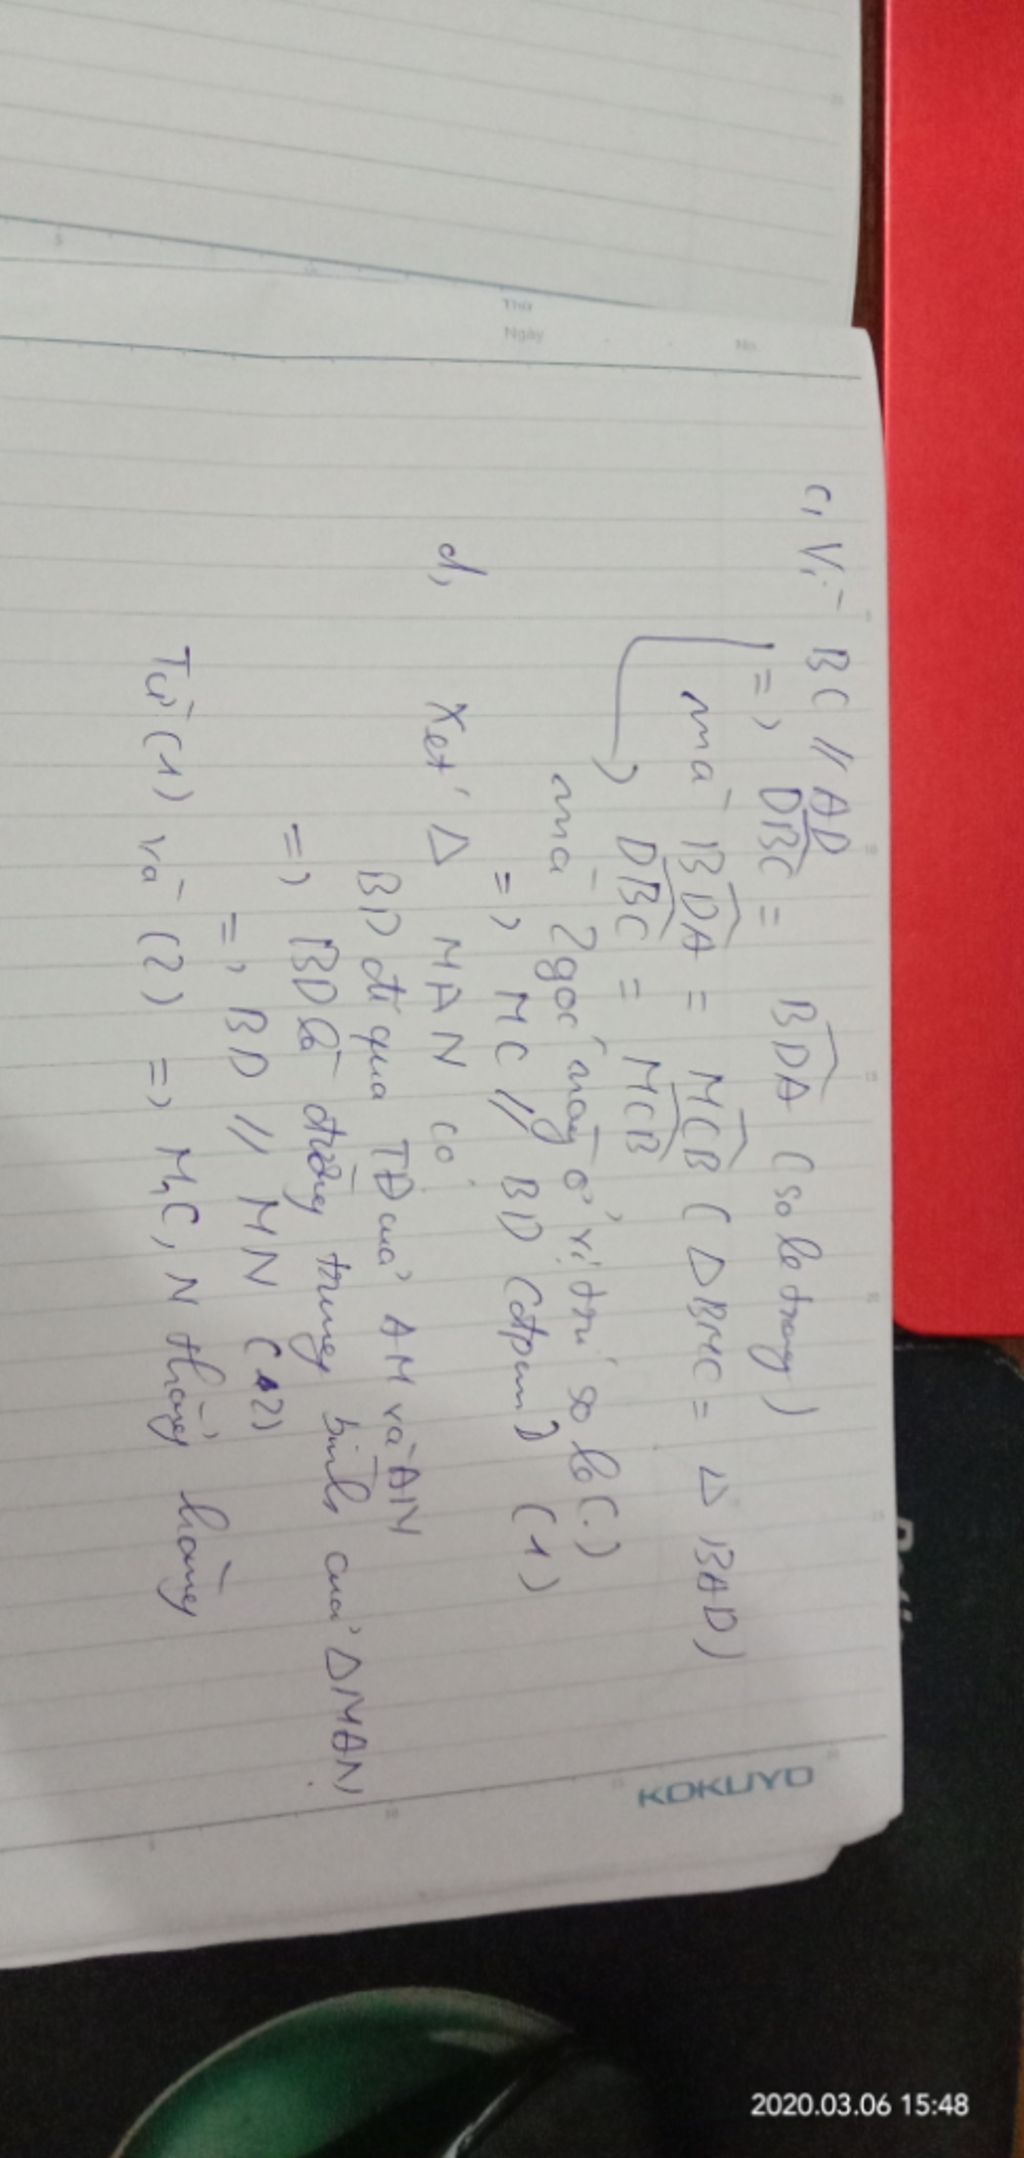 Thứ
Ngày
No.
c, Vì BC // AD
=> DBC = BDA (so le trong)
mà BDA = MCB (ΔBMC = ΔBAD)
DBC = MCB
mà 2 góc này ở vị trí so le (.)
=> MC // BD (đpcm) (1)
d, Xét Δ MAN có
BD đi qua TĐ của AM và AN
=> BD là đường trung bình của ΔMAN
=> BD // MN (2)
Từ (1) và (2) => M, C, N thẳng hàng
KOKUYO
2020.03.06 15:48